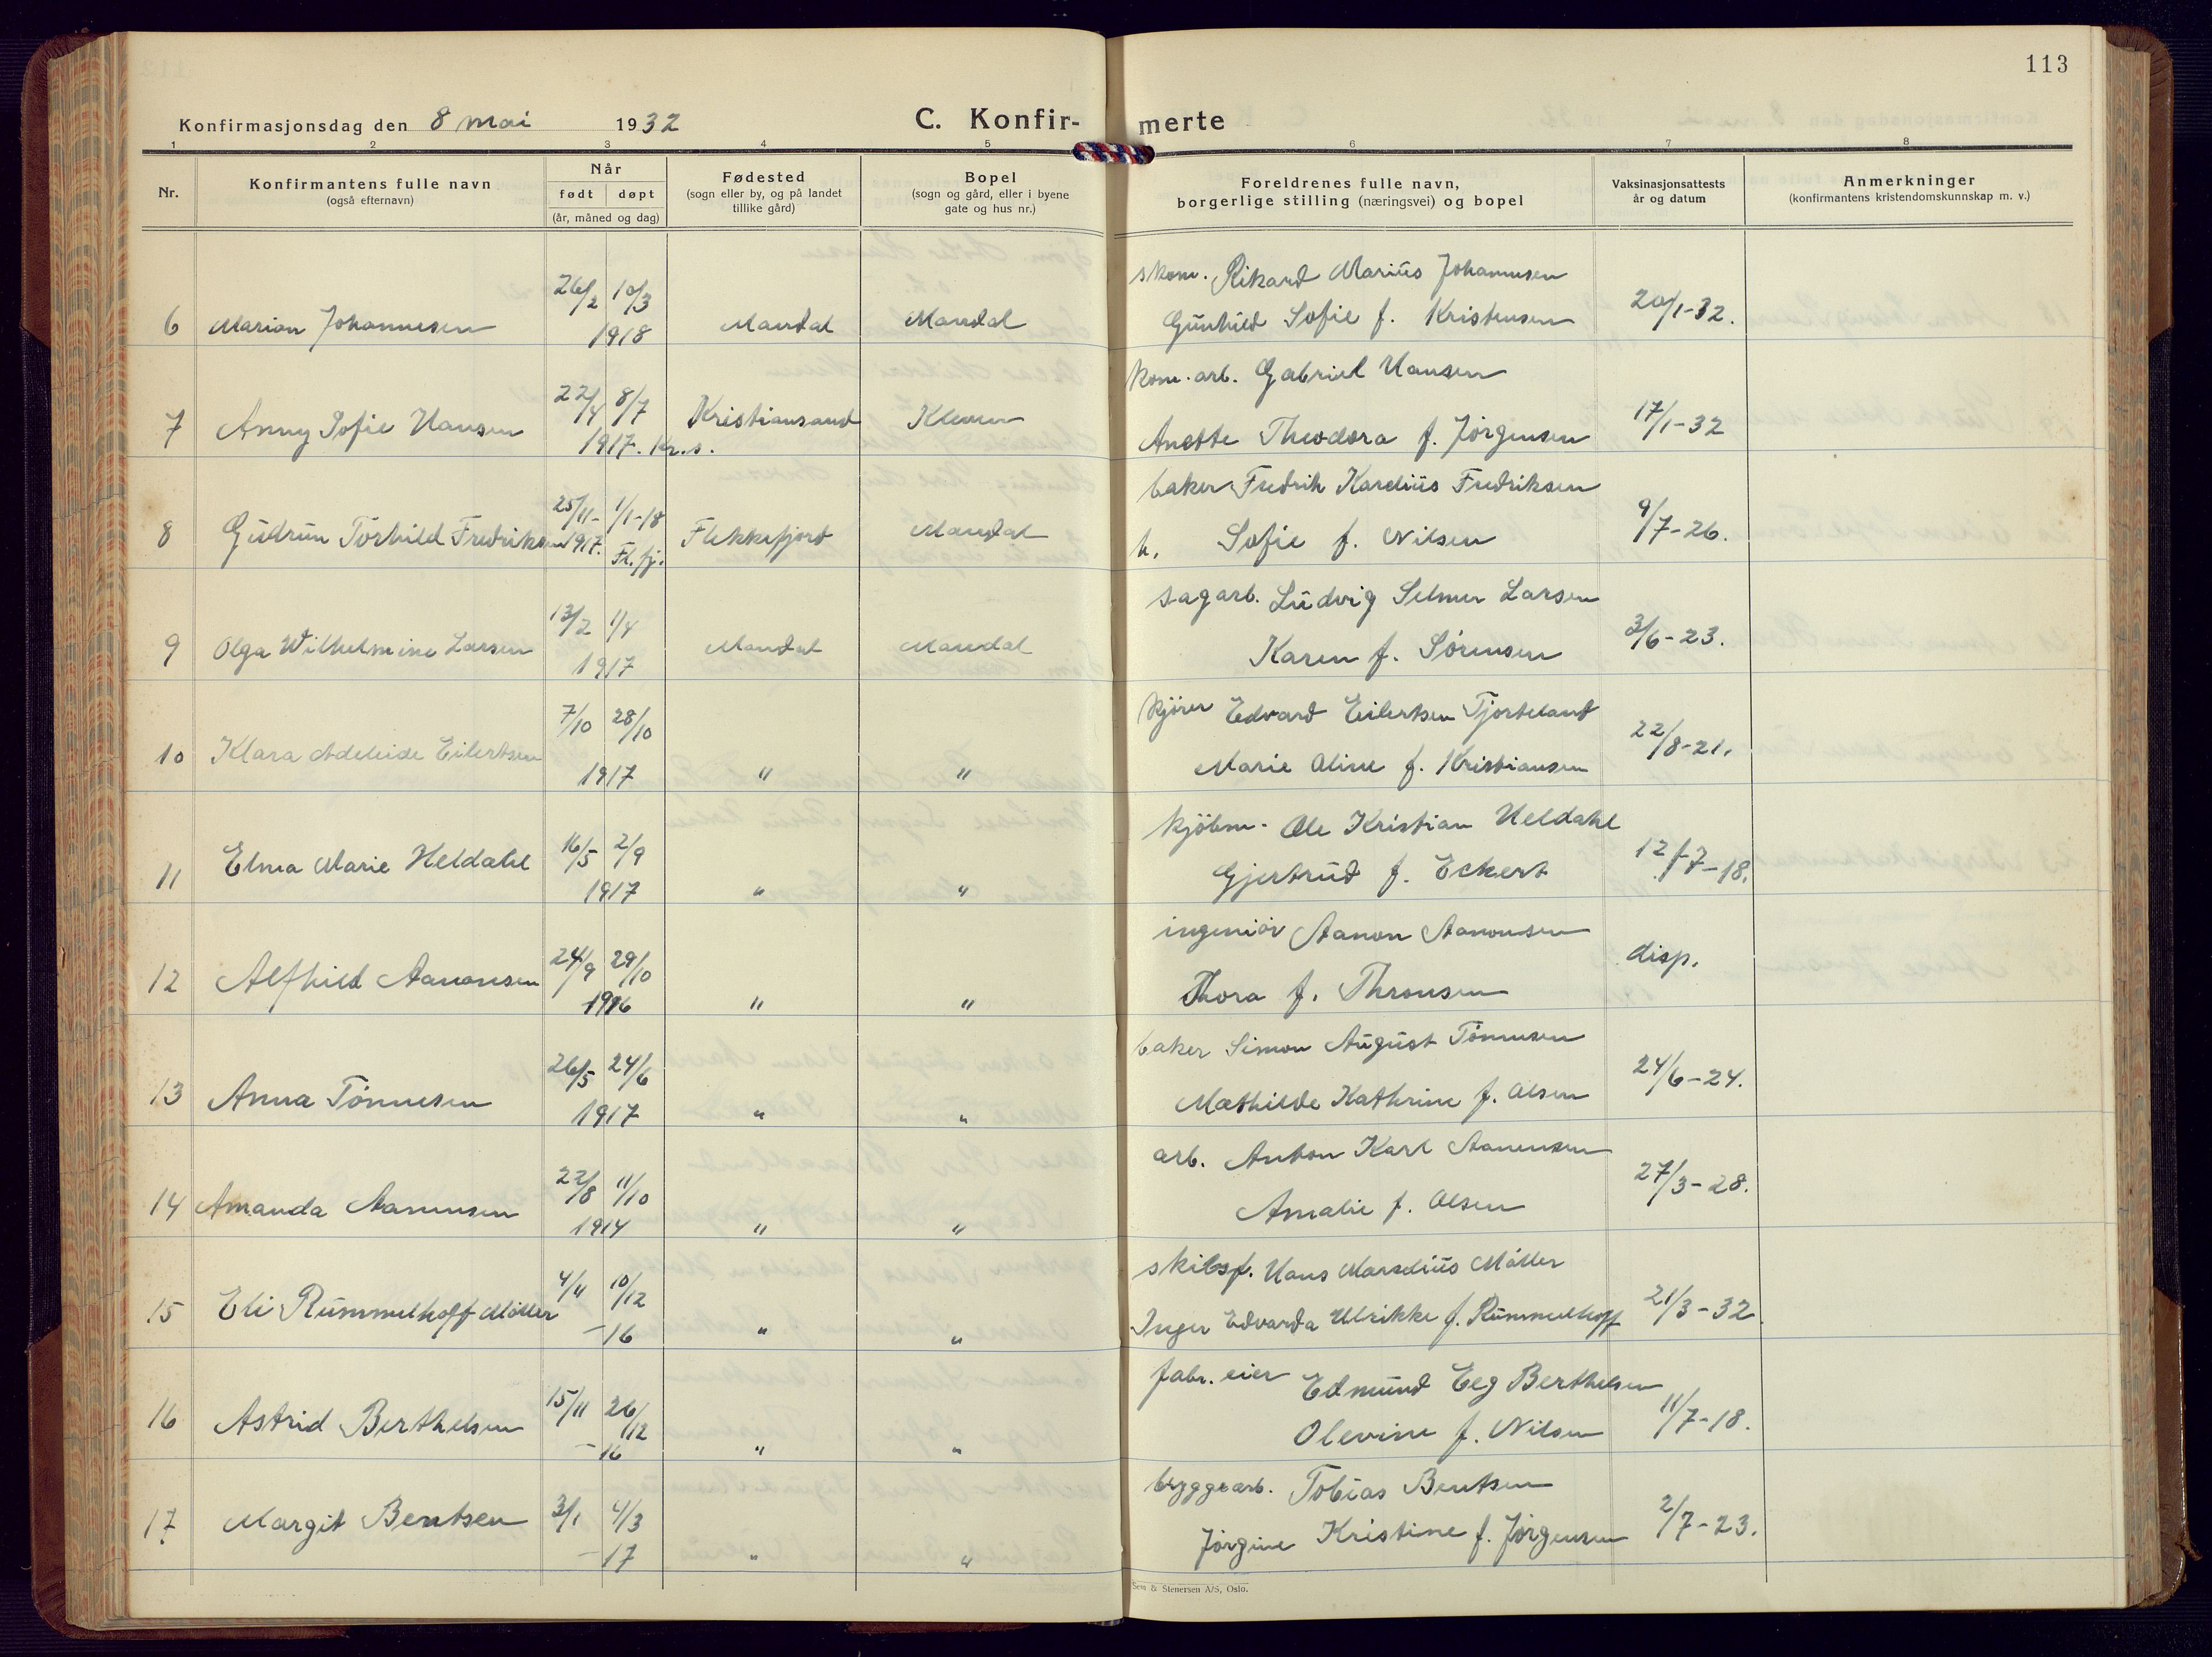 113
Konfirmasjonsdag den 8 mai 1932 C. Konfir- merte
1 2 3 4 5 6 7 8
Nr. Konfirmantens fulle navn (også efternavn) Når født døpt (år, måned og dag) Fødested (sogn eller by, og på landet tillike gård) Bopel (sogn og gård, eller i byene gate og hus nr.) Foreldrenes fulle navn, borgerlige stilling (næringsvei) og bopel Vaksinasjonsattests år og datum Anmerkninger (konfirmantens kristendomskunnskap m. v.)
26/2 10/3 skom. Rikard Marius Johannesen
6 Marion Johannesen 1918 Mandal Mandal Gunhild Sofie f. Kristensen 20/1-32.
22/4 8/7 kom. arb. Gabriel Hansen
7 Anny Sofie Hansen 1917. Kr.s. Kristiansand Kleven Anette Theodora f. Jørgensen 17/1-32
25/11- 1/1-18 baker Fredrik Kornelius Fredriksen
8 Gudrun Torhild Fredriksen 1917. Fl.fj. Flekkefjord Mandal h. Sofie f. Nilsen 9/7-26.
13/2 1/4 sagarb. Ludvig Selmer Larsen
9 Olga Wilhelmine Larsen 1917 Mandal Mandal Karen f. Sørensen 3/6-23.
7/10 28/10 kjører Edvard Eilertsen Tjorteland
10 Klara Adeleide Eilertsen 1917 " " Marie Oline f. Kristiansen 22/8-21.
16/5 2/9 kjöbm. Ole Kristian Heldahl
11 Elna Marie Heldahl 1917 " " Gjertrud f. Eckert 12/7-18.
24/9 29/10 ingeniør Aanon Aanonsen
12 Alfhild Aanonsen 1916 " " Thora f. Thronsen disp.
26/5 24/6 baker Simon August Tønnesen
13 Anna Tønnesen 1917 " " Mathilde Kathrine f. Olsen 24/6-24.
22/8 11/10 arb. Anton Karl Aanensen
14 Amanda Aanensen 1914 " " Amalie f. Olsen 27/3-28.
4/11 10/12 skibsf. Hans Marselius Møller
15 Eli Rummelhoff Møller -16 " " Inger Edvarda Ulrikke f. Rummelhoff 21/3-32.
15/11 26/12 fabr. eier Edmund Eeg Berthelsen
16 Astrid Berthelsen -16 " " Olevine f. Nilsen 11/7-18.
3/1 4/3 bryggearb. Tobias Bentsen
17 Margit Bentsen -17 " " Jørgine Kristine f. Jørgensen 2/7-23.
Sem & Stenersen A/S, Oslo.